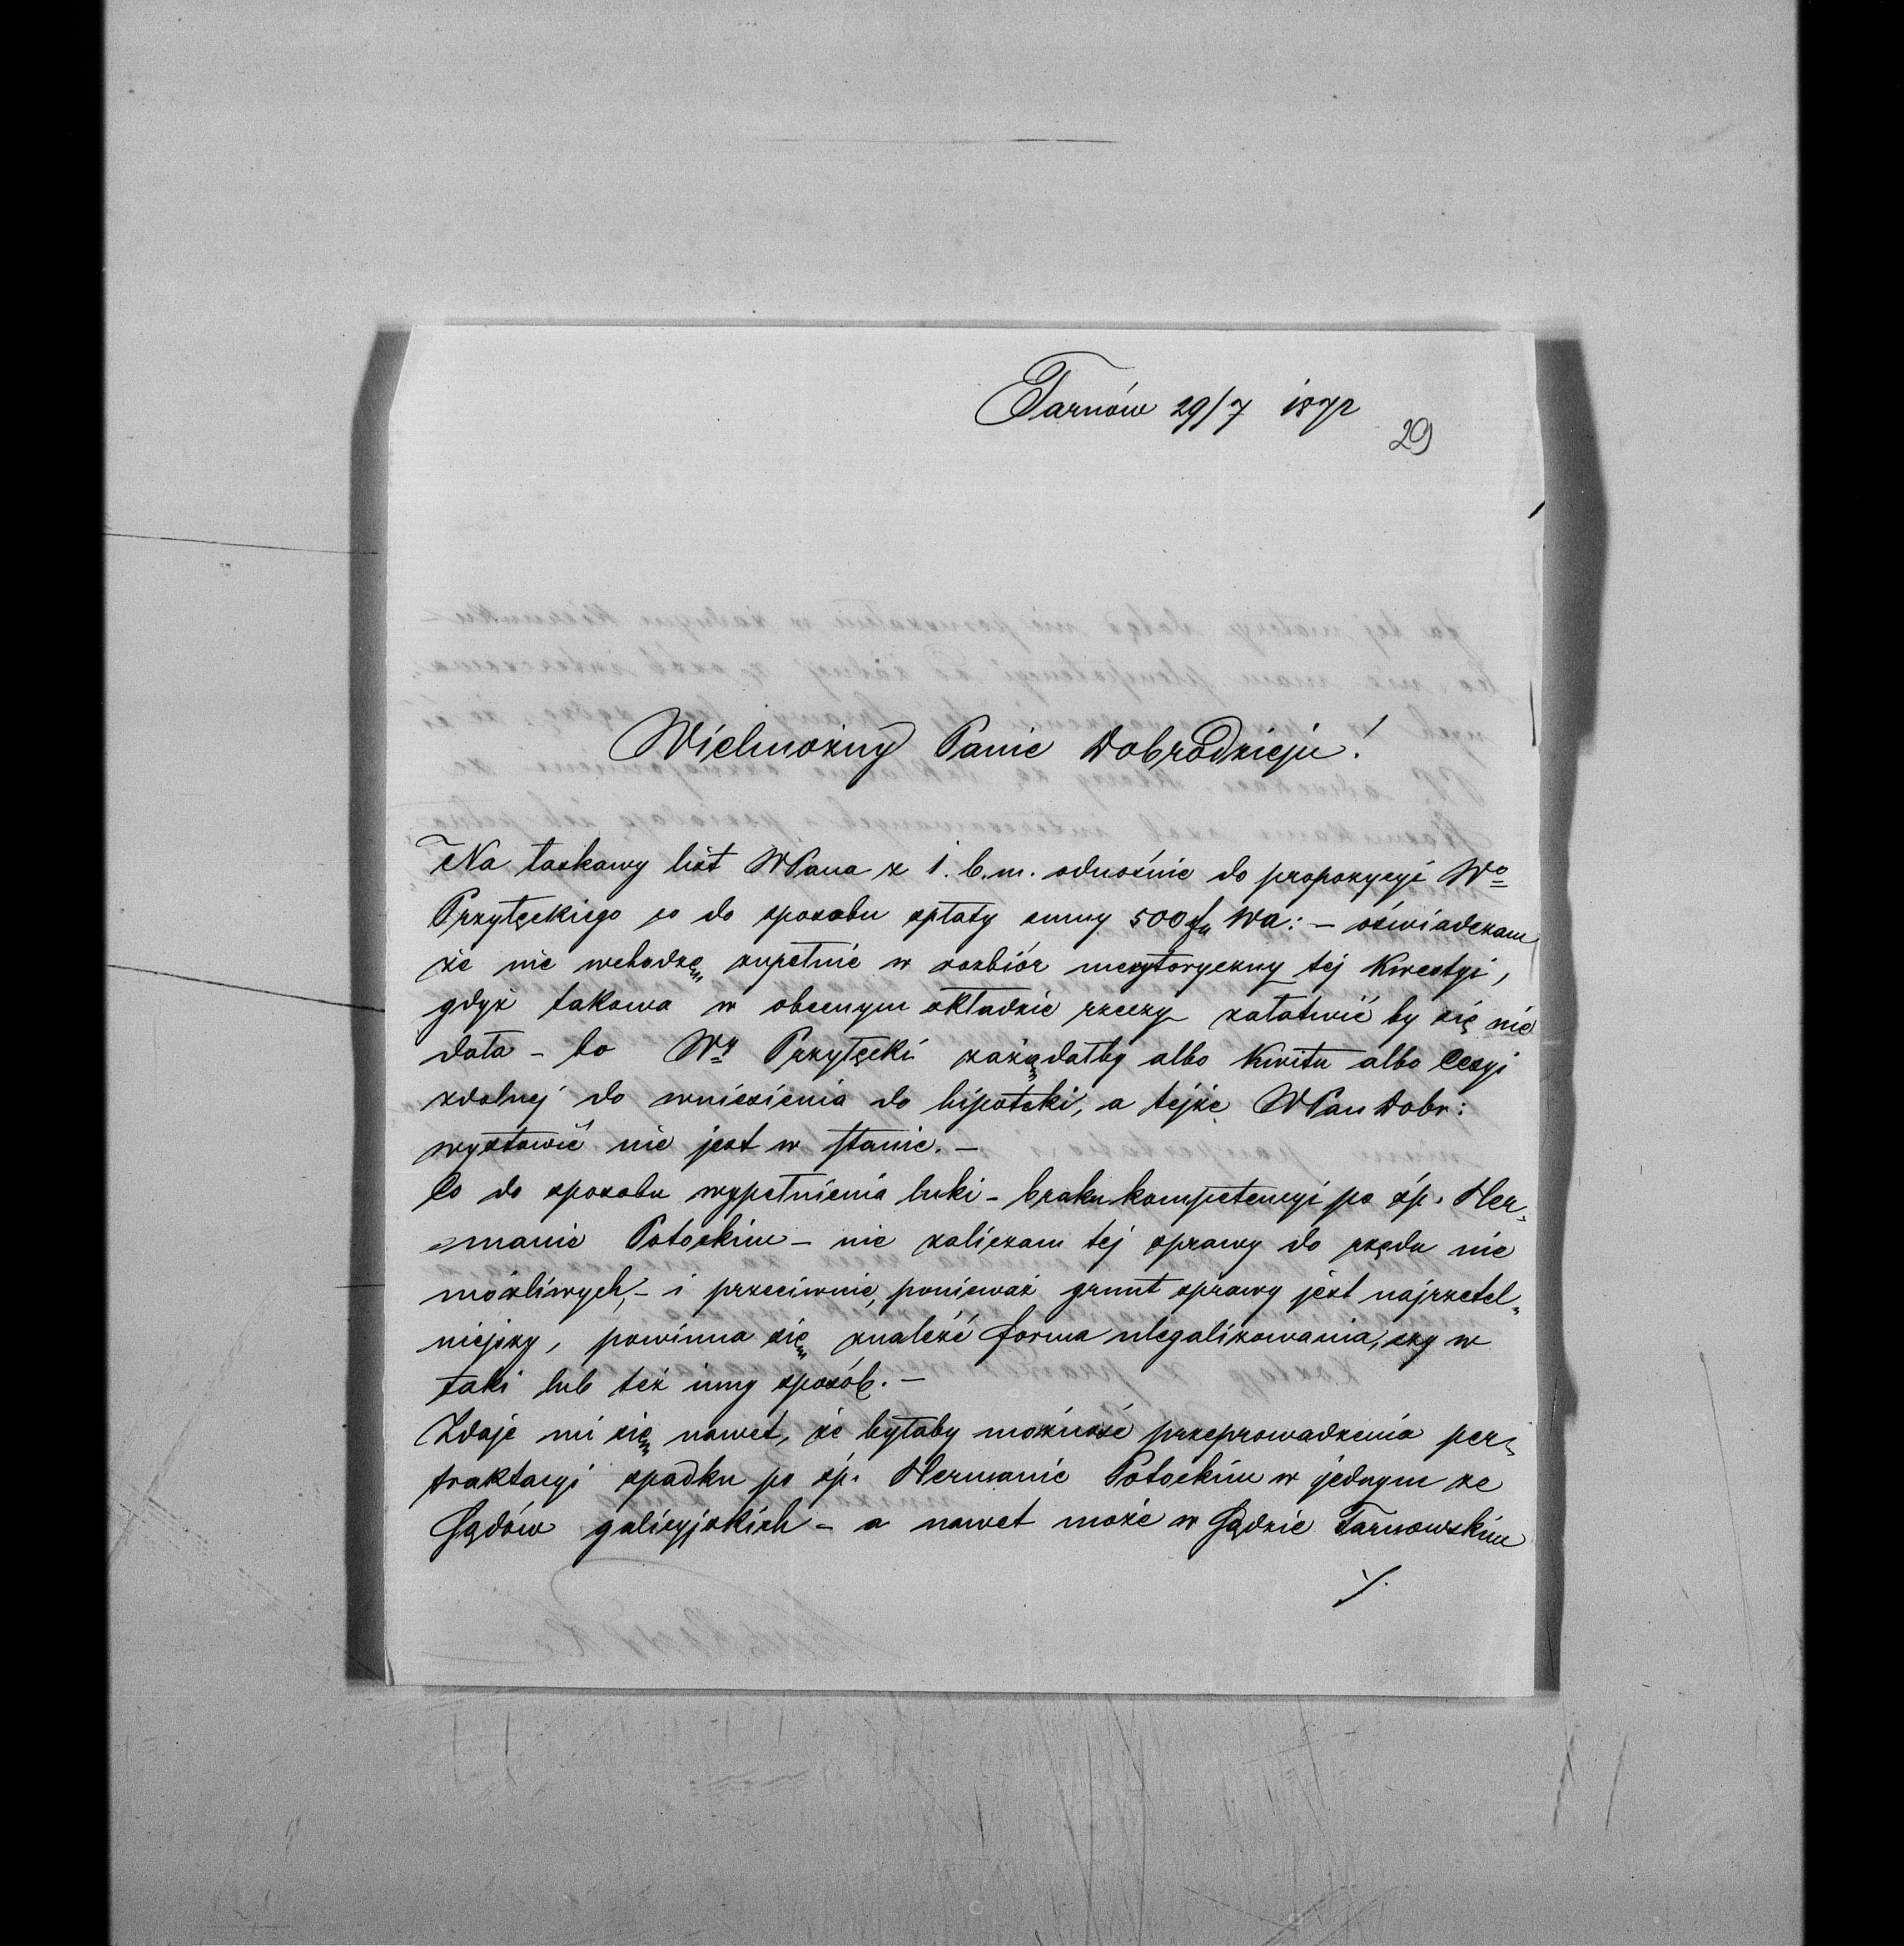 Tarnów 29/7 1872
29
Wielmożny Panie Dobrodzieju!
Na łaskawy list WPana z 1. b.m. odnośnie do propozycyi Wo
Przyłęckiego co do sposobu spłaty sumy 500 fl. Wa: – oświadczam
że nie wchodzę zupełnie w rozbiór merytoryczny tej kwestyi,
gdyż takowa w obecnym składzie rzeczy załatwić by się nie
dała – bo Wy Przyłęcki zażądałby albo kwitu albo Cesyi
zdolnej do wniesienia do hipoteki, a tejże WPan Dobr:
wystawić nie jest w stanie. –
Co do sposobu wypełnienia luki – braku kompetencyi po śp. Her„
manie Potockim – nie zaliczam tej sprawy do rzędu nie
możliwych, – i przeciwnie, ponieważ grunt sprawy jest najrzetel„
niejszy, powinna się znaleźć forma ulegalizowania, czy w
taki lub też inny sposób. –
Zdaje mi się nawet, że byłaby możność przeprowadzenia per„
traktacyi spadku po śp. Hermanie Potockim w jednym ze
Sądów galicyjskich – a nawet może w Sądzie Tarnowskim
./.